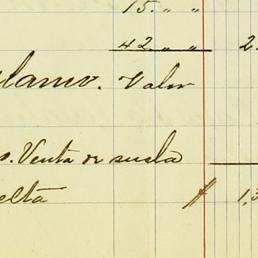 15. " "
42. " " 2.
lamo. Valor
s. Venta de suela
elta $ 1,3